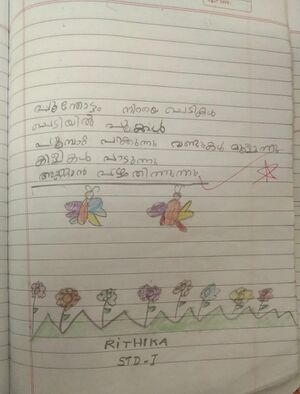 പൂന്തോട്ടം നിറയെ ചെടികൾ
ചെടിയിൽ പൂക്കൾ
പൂമ്പാറ്റ പറക്കുന്നു വണ്ടുകൾ മൂളുന്നു
കിളികൾ പാടുന്നു
അണ്ണാൻ പഴം തിന്നുന്നു
RITHIKA
STD-I